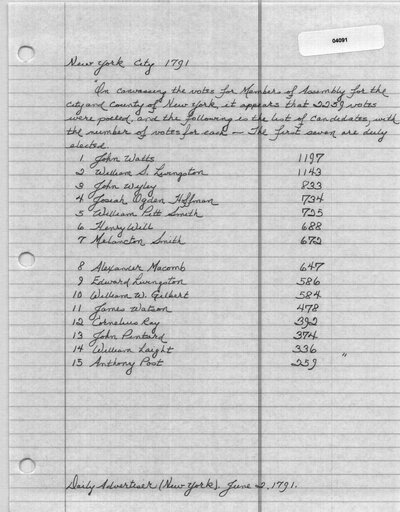 04091
New York City 1791
"On canvassing the votes for Members of Assembly for the
city and County of New York it appears that 2259 votes
were polled, and the following is the list of Candidates, with
the number of votes for each — The first seven are duly
elected
1 John Watts 1197
2 William S. Livingston 1143
3 John Wyley 833
4 Josiah Ogden Hoffman 734
5 William Pitt Smith 725
6 Henry Will 688
7 Melancton Smith 672
8 Alexander Macomb 647
9 Edward Livingston 586
10 William W. Gilbert 584
11 James Watson 478
12 Cornelius Ray 392
13 John Pintard 374
14 William Laight 336 "
15 Anthony Post 259
Daily Advertiser (New York). June 2, 1791.